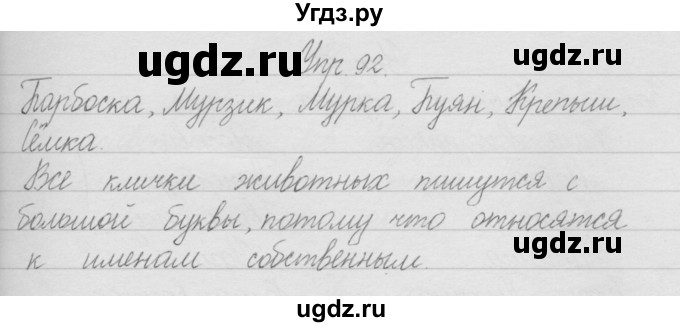 Угдз.ру
ugdz.ru ugdz.ru
Упр 92.
Барбоска, Мурзик, Мурка, Буян, Крепыш,
ugdz.ru
Сёмка.
Все клички животных пишутся с
большой буквы, потому что относятся
ugdz.ru
к именам собственным.
ugdz.ru